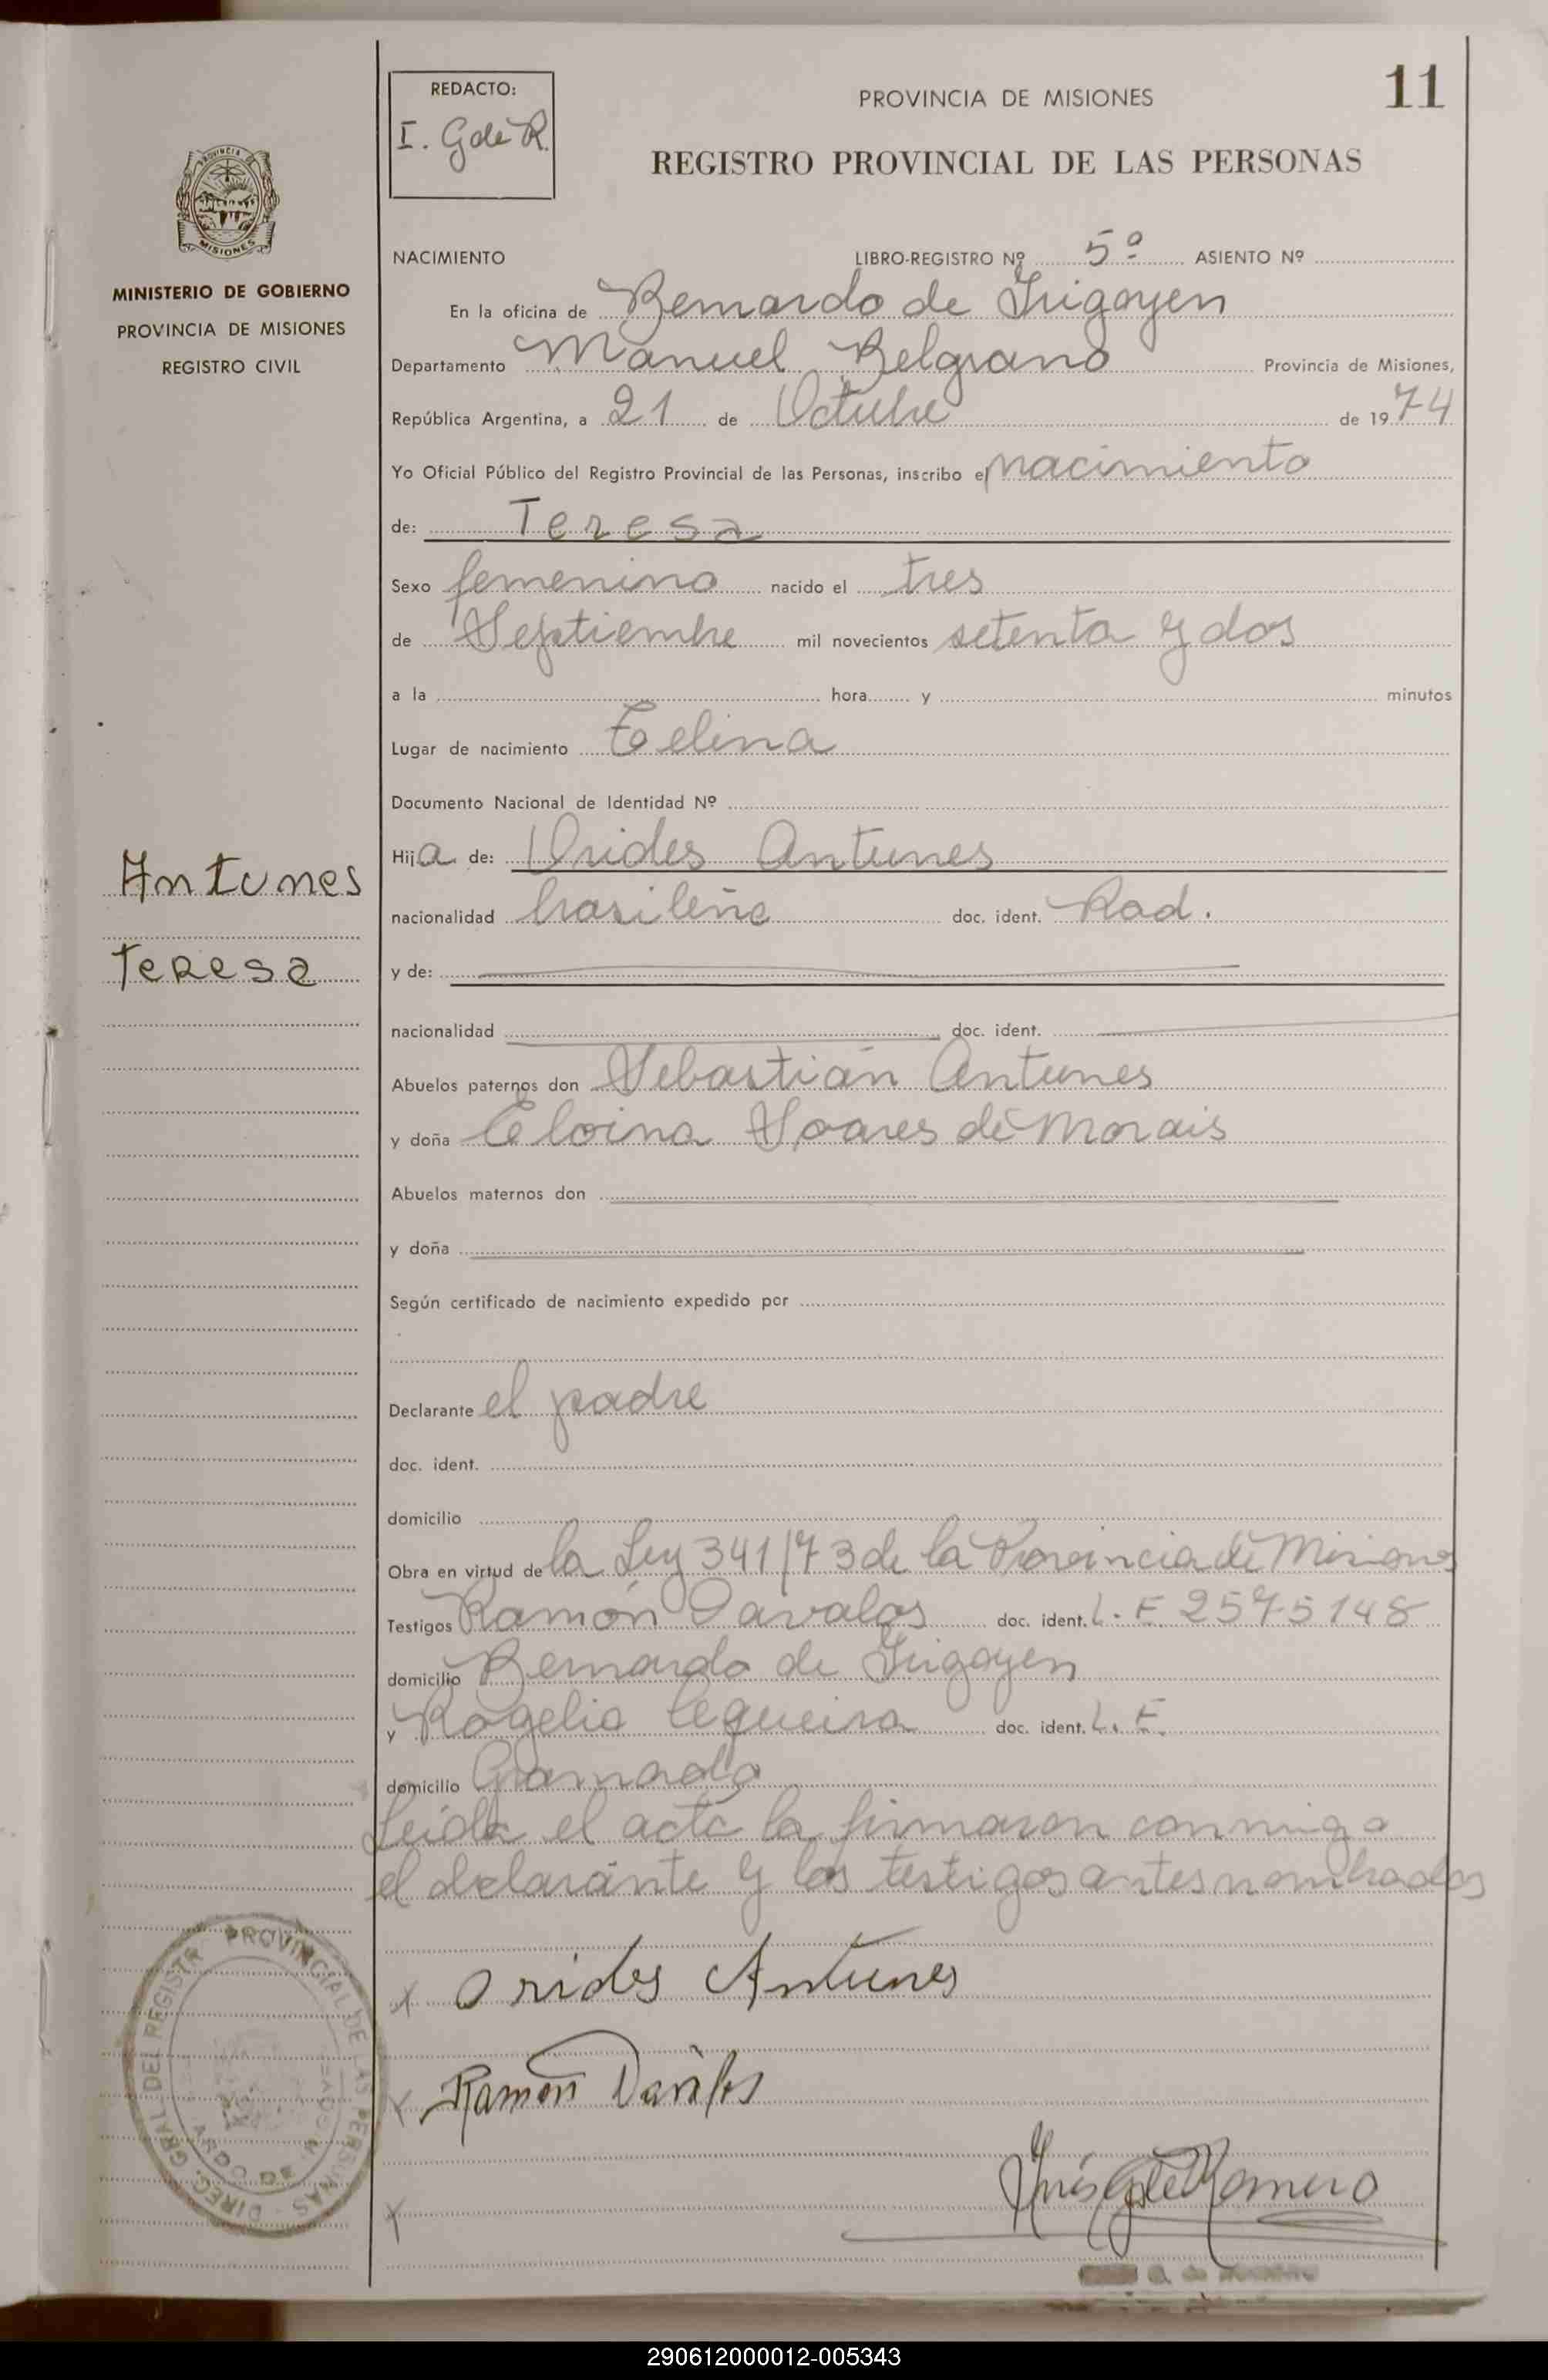 REDACTO:
I. G de R.
PROVINCIA DE MISIONES
11
REGISTRO PROVINCIAL DE LAS PERSONAS
MISIONES
MINISTERIO DE GOBIERNO
PROVINCIA DE MISIONES
REGISTRO CIVIL
NACIMIENTO LIBRO-REGISTRO Nº 5º ASIENTO Nº
En la oficina de Bernardo de Irigoyen
Departamento Manuel Belgrano Provincia de Misiones,
República Argentina, a 21 de Octubre de 1974
Yo Oficial Público del Registro Provincial de las Personas, inscribo el nacimiento
de: Teresa
Sexo femenino nacido el tres
de Septiembre mil novecientos setenta y dos
a la hora y minutos
Lugar de nacimiento
Documento Nacional de Identidad Nº
Hija de: Orides Antunes
nacionalidad brasileña doc. ident. Rad.
y de:
nacionalidad doc. ident.
Abuelos paternos don Sebastián Antunes
y doña Eloina Soares de Morais
Abuelos maternos don
y doña
Según certificado de nacimiento expedido por
Declarante el padre
doc. ident.
domicilio
Obra en virtud de la Ley 341/73 de la Provincia de Misiones
Testigos Ramón Davalos doc. ident. L. E 2575148
domicilio Bernardo de Irigoyen
y Rogelio Cequeira doc. ident. L. E.
domicilio Gramado
Leida el acta la firmaron conmigo
el declarante y los testigos antes nombrados
Antunes
Teresa
x Orides Antunes
x Ramón Davalos
Inés G de Romero
x
DIREC. GRAL. DEL REGISTR PROVINCIAL DE LAS PERSONAS
290612000012-005343